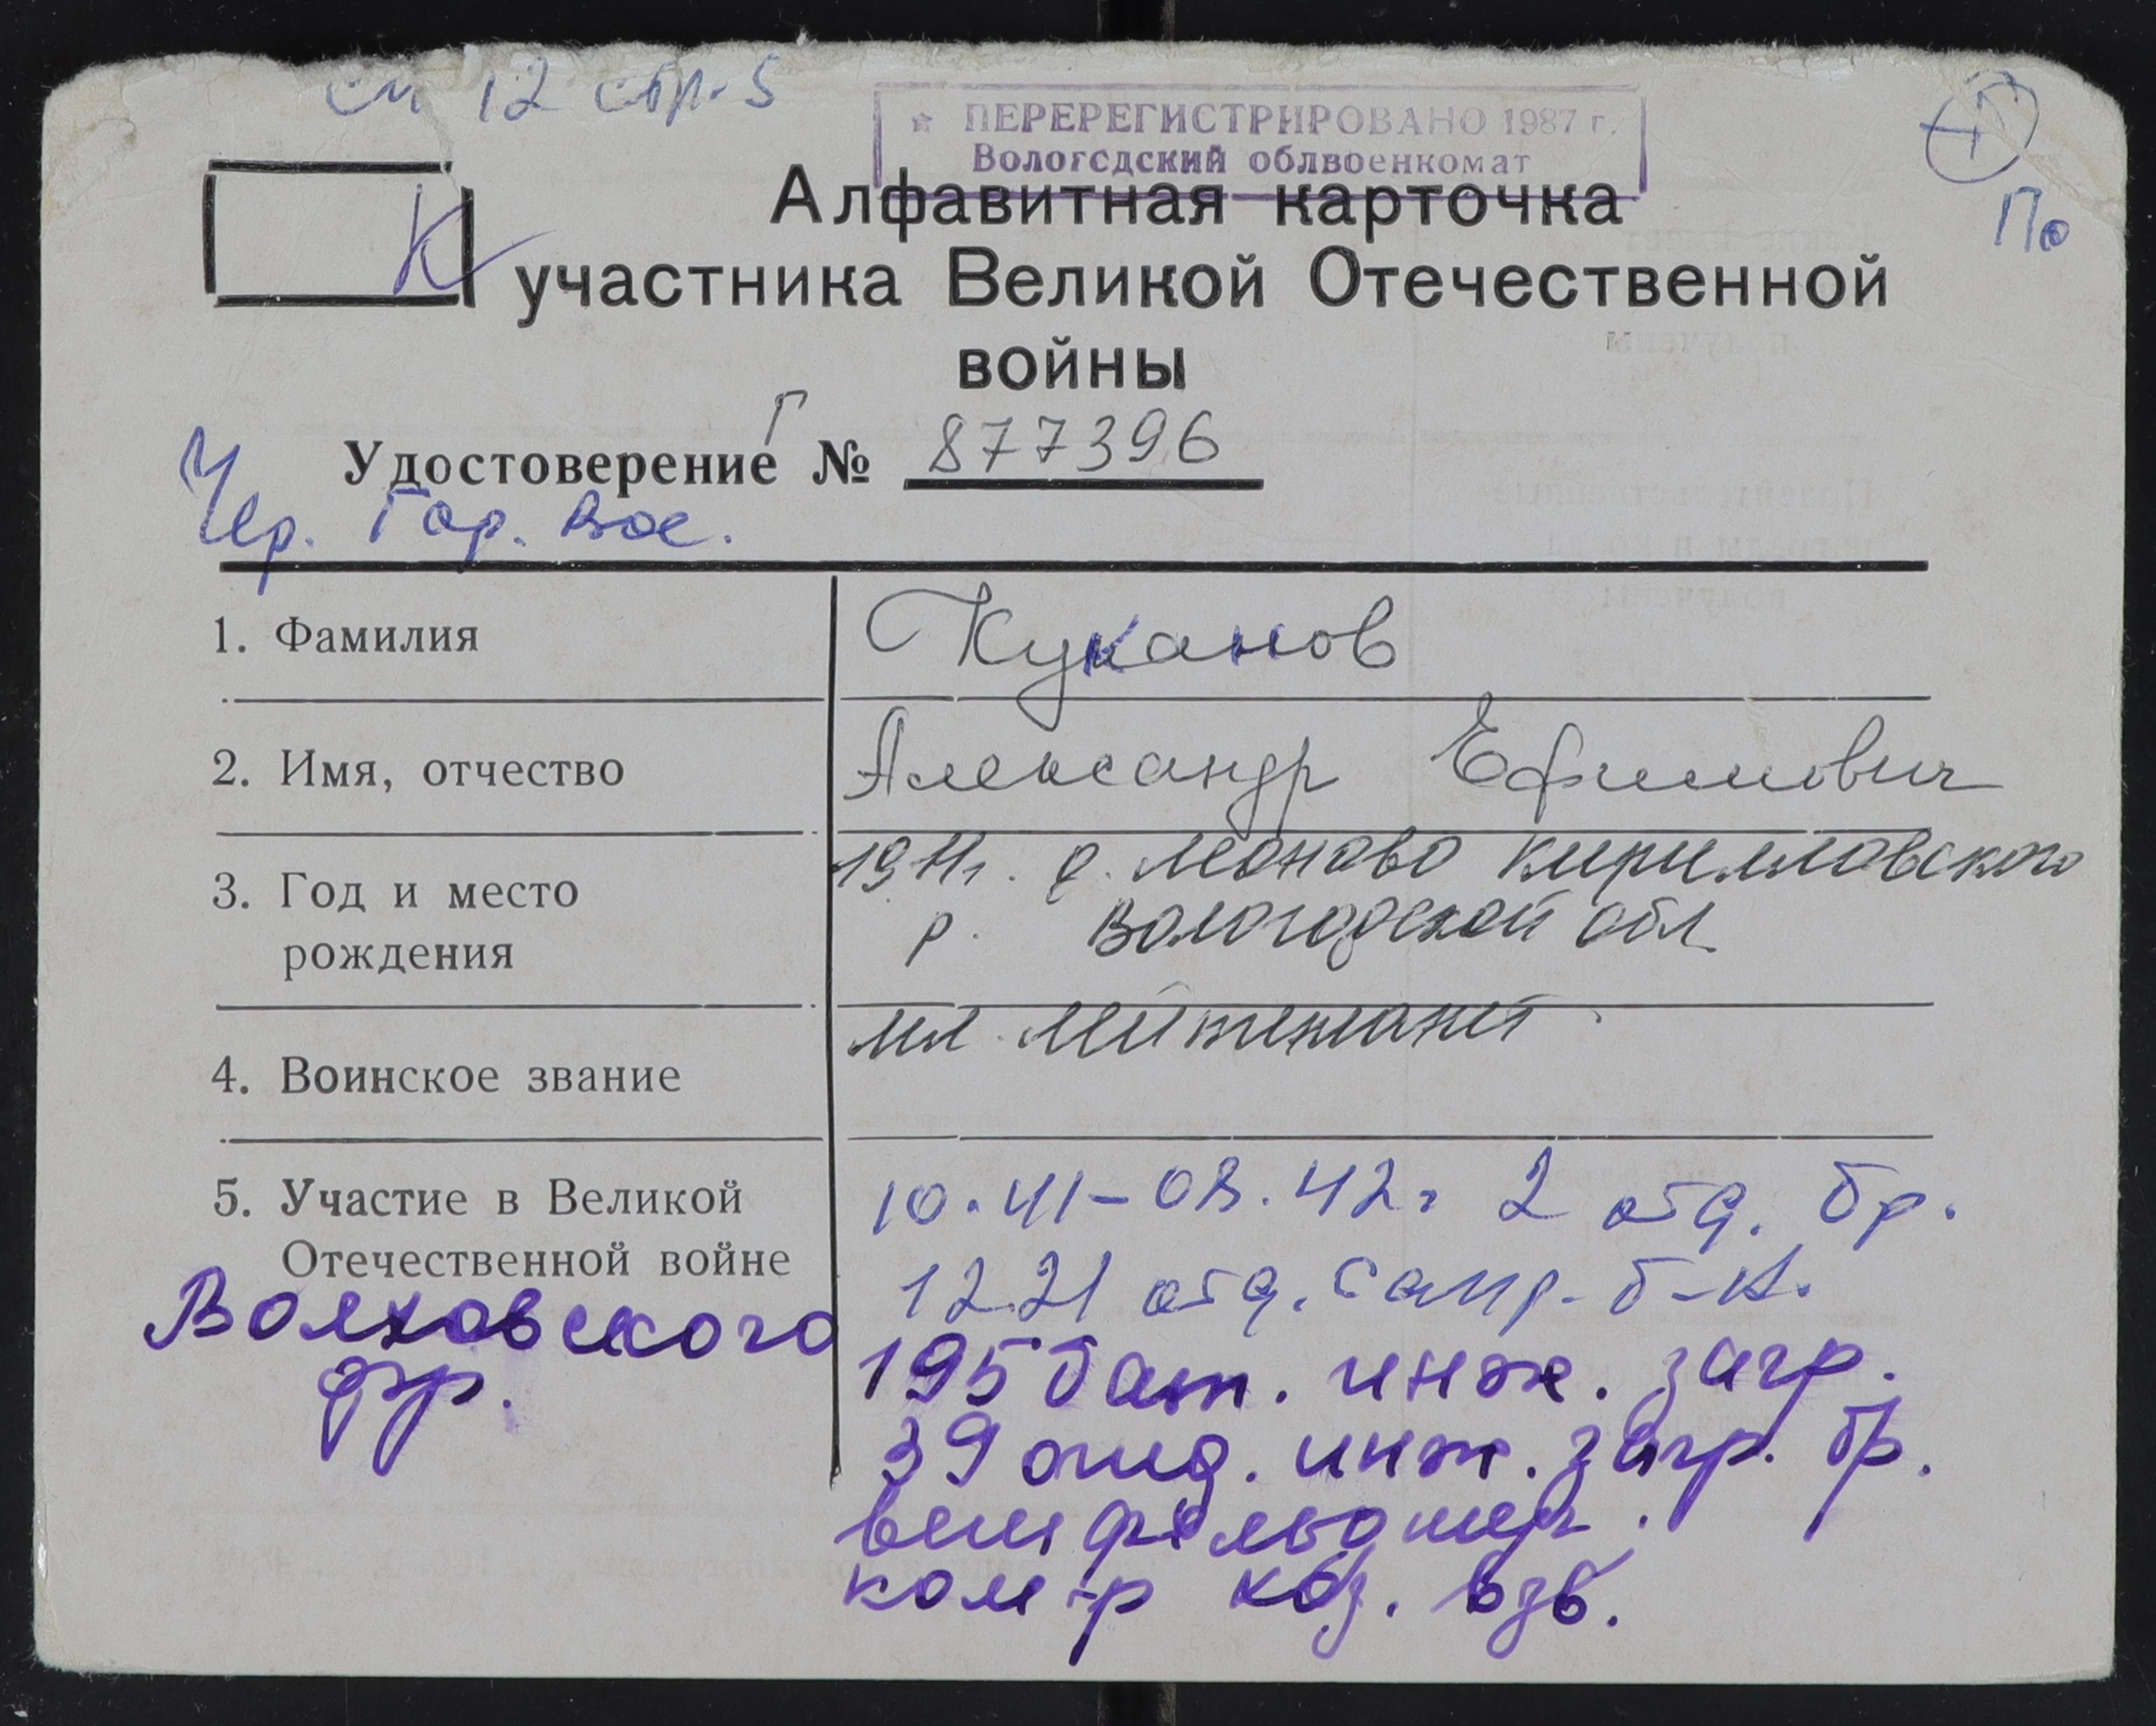 см 12 стр. 5
ПЕРЕРЕГИСТРИРОВАНО 1987 г.
Вологодский облвоенкомат
К
По
Алфавитная карточка
участника Великой Отечественной
войны
Удостоверение Г № 877396
Чер. Гор. Вое.
1. Фамилия Куканов
2. Имя, отчество Александр Ефимович
3. Год и место 1911г. д. Леоново Кирилловского
рождения р. Вологодской обл
4. Воинское звание мл. лейтенант
5. Участие в Великой 10.41-08.42г 2 отд. бр.
Отечественной войне 1221 отд. сапр. б-н.
Волховского 195 бат. инж. загр.
фр. 39 отд. инж. загр. бр.
вет фельдшер.
ком-р хоз. взв.